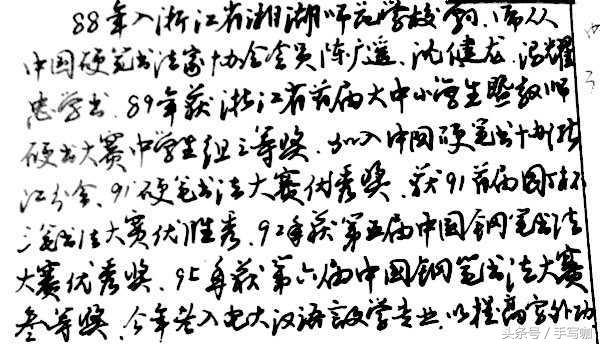 88年入浙江省湘湖师范学校学习、师从
中国硬笔书法家协会会员陈广遥、沈健龙、冯耀
忠学书、89年获浙江省首届大中小学生暨教师
硬书大赛中学生组三等奖、加入中国硬笔书协浙
江分会、91硬笔书法大赛优秀奖、获91首届国际杯
三笔书法大赛优胜奖、92年获第五届中国钢笔书法
大赛优秀奖、95年获第六届中国钢笔书法大赛
叁等奖、今年考入电大汉语文学专业、以提高字外功
头条号 / 手写咖